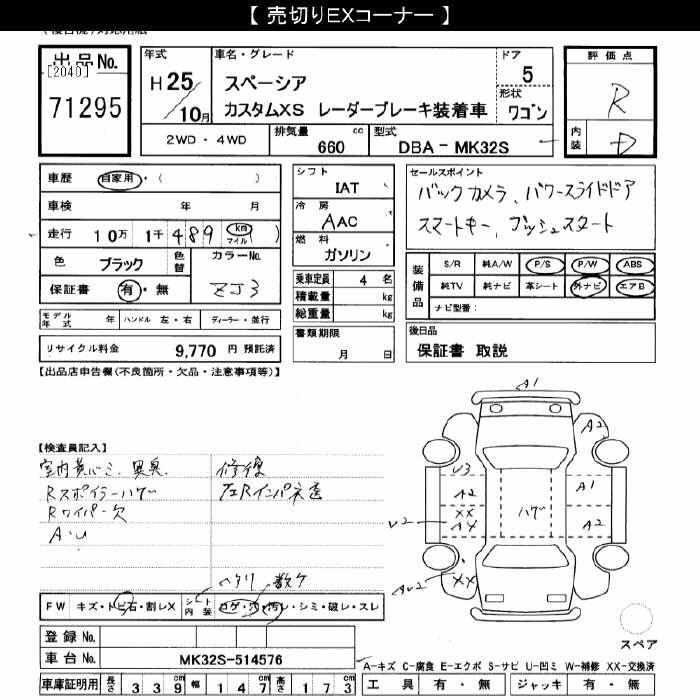 【 売切りEXコーナー 】
出品No.
[2040]
71295
年式
H25/10月
車名・グレード
スペーシア
カスタムXS レーダーブレーキ装着車
ドア
5
形状
ワゴン
2WD・4WD
排気量
660 cc
型式
DBA-MK32S
評価点
R
内装
D
車歴 自家用・( )
車検 年 月
走行 10万 1千 489 km マイル ( )
色 ブラック
色替
カラーNo.
ZJ3
保証書 有・無
モデル年式 年 ハンドル 左・右 ディーラー・並行
リサイクル料金 9,770 円 預託済
シフト
IAT
冷房
AAC
燃料
ガソリン
乗車定員 4 名
積載量 kg
総重量 kg
書類期限
月 日
セールスポイント
バックカメラ、パワースライドドア
スマートキー、プッシュスタート
装備品
S/R 純A/W P/S P/W ABS
純TV 純ナビ 革シート 外ナビ エアB
ナビ型番:
後日品
保証書 取説
【出品店申告欄(不良箇所・欠品・注意事項等)】
【検査員記入】
Rスポイラーハゲ
Rワイパー欠
A・U
修復
左Rインパネ歪
ヘタリ 数ケ
FW キズ・トビ石・割レX
シート内装 コゲ・穴・汚レ・シミ・破レ・スレ
A1
A2
U3
A2
XX
A4
U2
ハゲ
A1
A2
AU2
XX
スペア
登録No.
車台No. MK32S-514576
A-キズ C-腐食 E-エクボ S-サビ U-凹ミ W-補修 XX-交換済
車庫証明用 長さ 339cm 幅 147cm 高さ 173cm
工具 有・無 ジャッキ 有・無